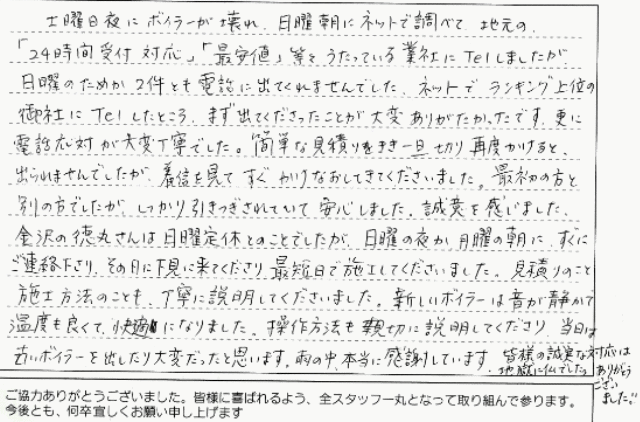 土曜日夜にボイラーが壊れ、日曜朝にネットで調べて、地元の、
「24時間受付対応」「最安値」等をうたっている業社にTelしましたが
日曜のためか2件とも電話に出てくれませんでした。ネットでランキング上位の
御社にTelしたところ、まず出てくださったことが大変ありがたかったです。更に
電話応対が大変丁寧でした。簡単な見積りをきき一旦切り再度かけると、
出られませんでしたが、着信を見てすぐかけなおしてきてくださいました。最初の方と
別の方でしたが、しっかり引きつぎされていて安心しました。誠意を感じました。
金沢の徳丸さんは日曜定休とのことでしたが、日曜の夜か月曜の朝に、すぐに
ご連絡下さり、その日に下見に来てくださり最短日で施工してくださいました。見積りのこと
施工方法のことも、丁寧に説明してくださいました。新しいボイラーは音が静かで
温度も良くて、快適になりました。操作方法も親切に説明してくださり、当日は
古いボイラーを出したり大変だったと思います。雨の中、本当に感謝しています。
皆様の誠実な対応は
地獄に仏でした。ありがとう
ござい
ました。
ご協力ありがとうございました。皆様に喜ばれるよう、全スタッフ一丸となって取り組んで参ります。
今後とも、何卒宜しくお願い申し上げます